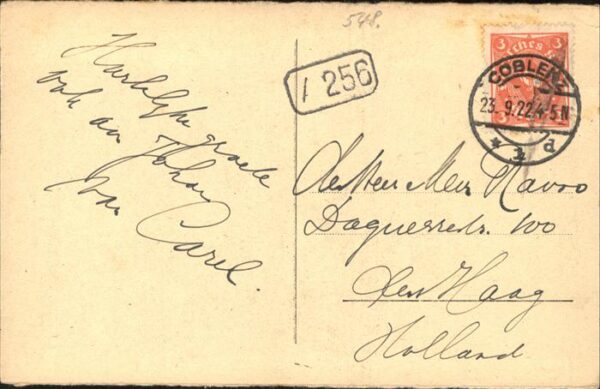 548.
1 256
3 3
COBLENZ
23.9.22.4-5N
* 1 d
3
Hartelijke groete
ook aan Johan
van
Carel.
den Heer
Daguerrestr. 100
Den Haag
Holland